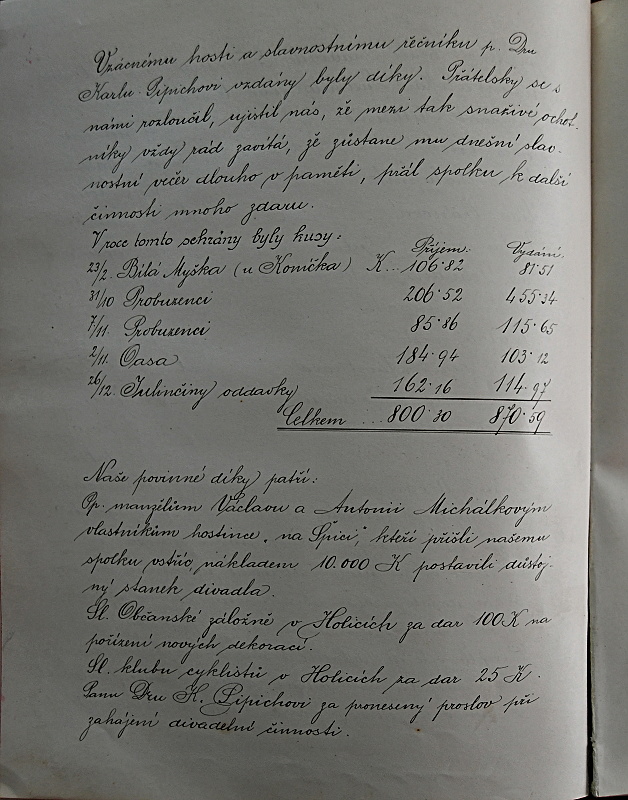 Vzácnému hosti a slavnostnímu řečníku p. Dru
Karlu Pipichovi vzdány byly díky. Přátelsky se s
námi rozloučil, ujistil nás, že mezi tak snaživé ochot-
níky vždy rád zavítá, že zůstane mu dnešní slav-
nostní večer dlouho v paměti, přál spolku k další
činnosti mnoho zdaru.
V roce tomto sehrány byly kusy:
Příjem: Vydání:
23/2. Bílá Myška (u Koníčka) K... 106·82 81·51
31/10 Probuzenci 206·52 455·34
7/11. Probuzenci 85·86 115·65
2/11. Oasa 184·94 103·12
26/12. Julinčiny oddavky 162·16 114·97
Celkem ... 800·30 870·59
Naše povinné díky patří:
Pp. manželům Václavu a Antonii Michálkovým
vlastníkům hostince „na Špici", kteří přišli našemu
spolku vstříc, nákladem 10.000 K postavili důstoj-
ný stanek divadla.
Sl. Občanské záložně v Holicích za dar 100 K na
pořízení nových dekorací.
Sl. klubu cyklistů v Holicích za dar 25 K.
Panu Dru K. Pipichovi za pronesený proslov při
zahájení divadelní činnosti.